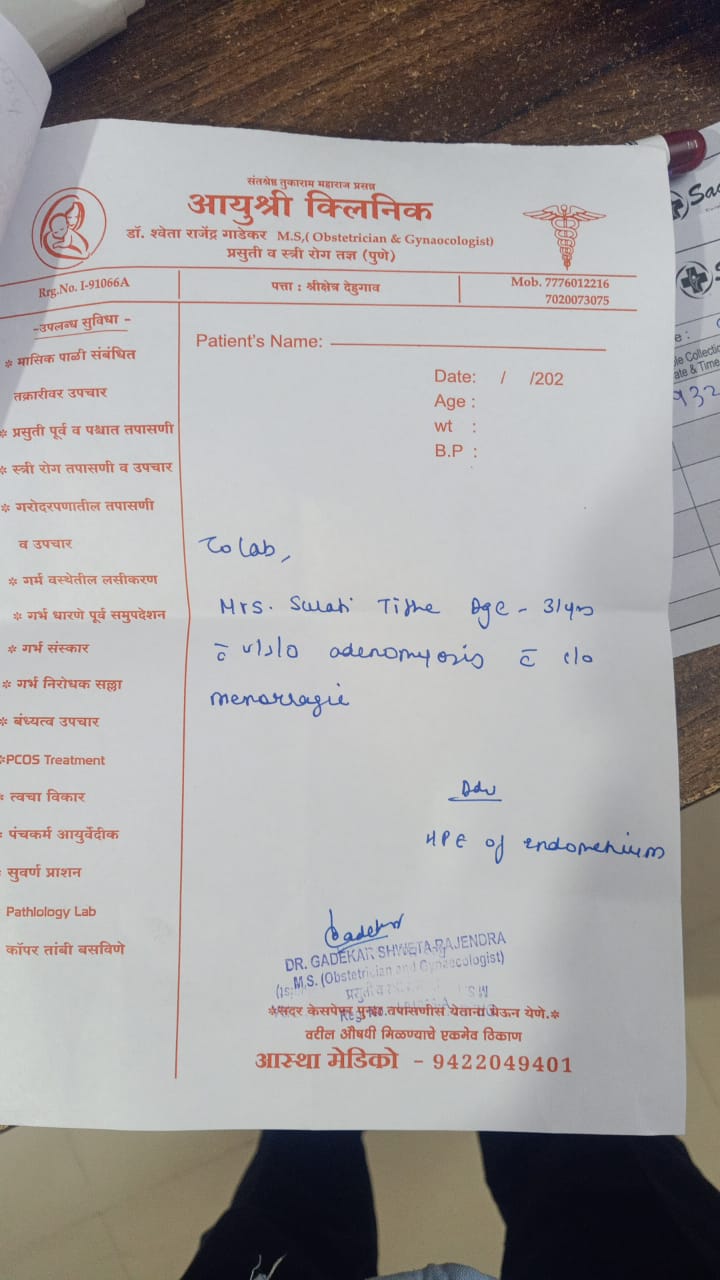 संतश्रेष्ठ तुकाराम महाराज प्रसन्न
आयुश्री क्लिनिक
डॉ. श्वेता राजेंद्र गाडेकर M.S,( Obstetrician & Gynaocologist)
प्रसुती व स्त्री रोग तज्ञ (पुणे)
Rrg.No. I-91066A
पत्ता : श्रीक्षेत्र देहुगाव
Mob. 7776012216
7020073075
-उपलब्ध सुविधा -
* मासिक पाळी संबंधित
तक्रारीवर उपचार
* प्रसुती पूर्व व पश्चात तपासणी
* स्त्री रोग तपासणी व उपचार
* गरोदरपणातील तपासणी
व उपचार
* गर्भ वस्थेतील लसीकरण
* गर्भ धारणे पूर्व समुपदेशन
* गर्भ संस्कार
* गर्भ निरोधक सल्ला
* बंध्यत्व उपचार
*PCOS Treatment
* त्वचा विकार
* पंचकर्म आयुर्वेदीक
* सुवर्ण प्राशन
Pathlology Lab
कॉपर तांबी बसविणे
Patient's Name:
Date: / /202
Age :
wt :
B.P :
To Lab,
Mrs. Age - 31yrs
c̄ adenomyosis c̄ c/o
menorragie
Adv
HPE of endometrium
Gadekar
DR. GADEKAR SHWETA RAJENDRA
M.S. (Obstetrician and Gynaecologist)
*सदर केसपेपर पुन्हा तपासणीस येताना घेऊन येणे.*
वरील औषधी मिळण्याचे एकमेव ठिकाण
आस्था मेडिको - 9422049401